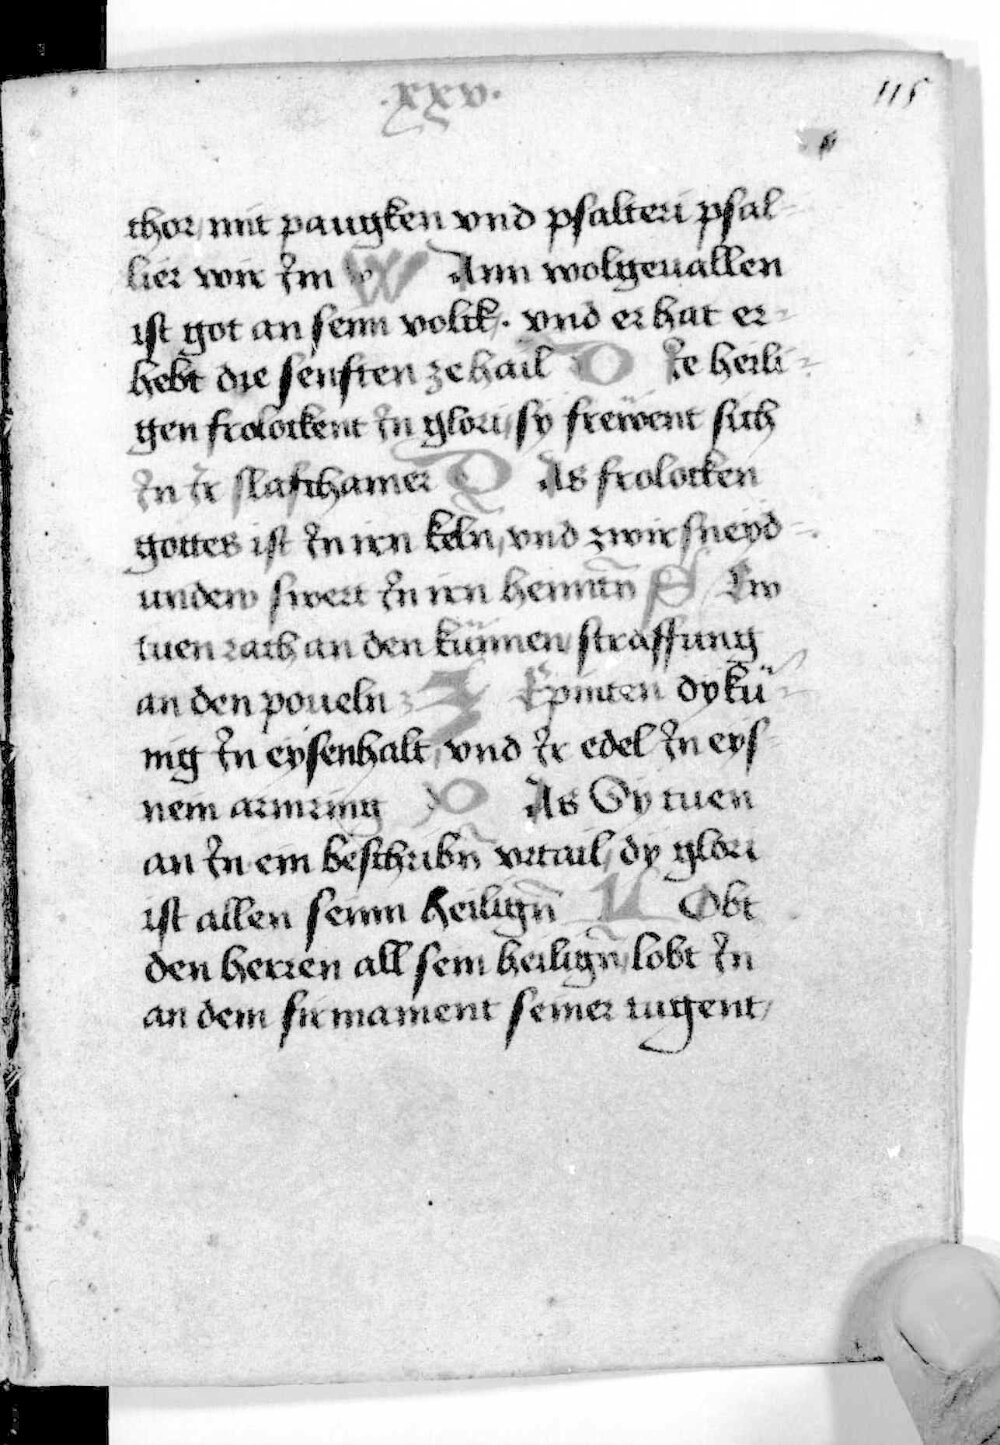 .xxv.
115
thor, mit paugken vnd psalteri psal-
lier wir Jm W Ann wolgeuallen
ist got an seim volck. vnd er hat er-
hebt die senften ze hail D Je heili-
gen frolockent Jn glori, sy frëwent sich
Jn Jr slafchamer D As frolocken
gottes ist Jn irn keln, vnd zwir sneyd-
undew swert Jn irn henntn̄ S Ew
tuen rach an den künnen, straffung
an den poueln Z E pinten dy kü-
nig Jn eysenhalt, vnd Jr edel Jn eys-
nein armring D As Sy tuen
an Jn ein beschribn̄ vrtail, dy glori
ist allen seinn heilign̄ L Obt
den herren all sein heilign̄, lobt Jn
an dem firmament seiner tugent,